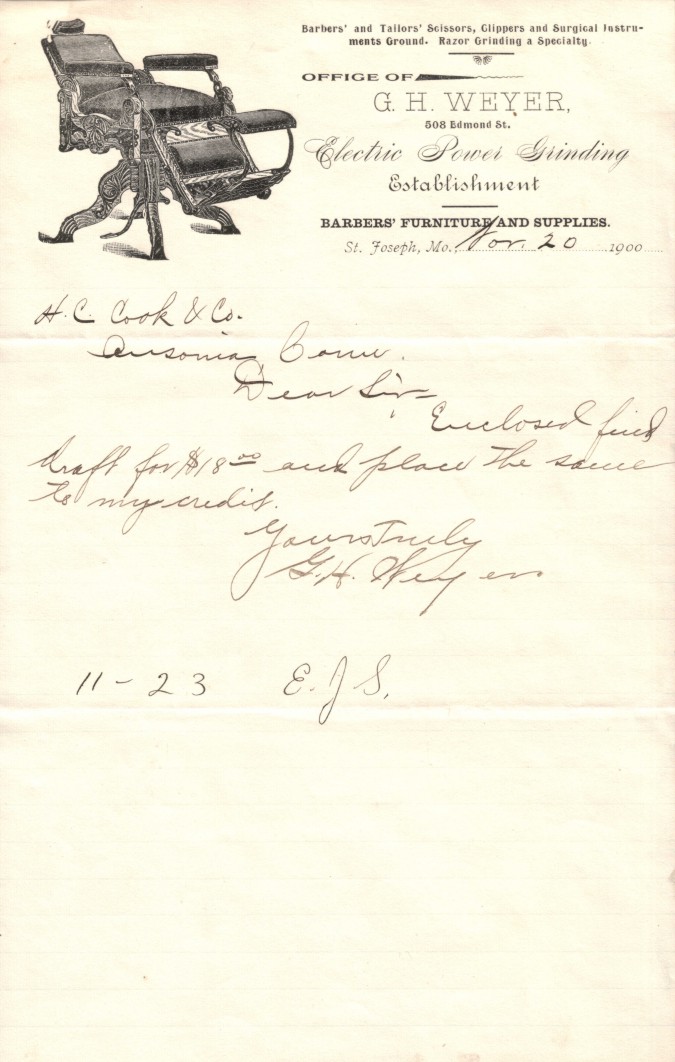 Barbers' and Tailors' Scissors, Clippers and Surgical Instru-
ments Ground. Razor Grinding a Specialty.
OFFICE OF
G. H. WEYER,
508 Edmond St.
Electric Power Grinding
Establishment
BARBERS' FURNITURE AND SUPPLIES.
St. Joseph, Mo., Nov. 20 1900
H. C. Cook & Co.
Ansonia Conn.
Dear Sir-
Enclosed find
draft for $18 00 and place the same
to my credit.
Yours Truly
G. H. Weyer
11-23 E. J. S.